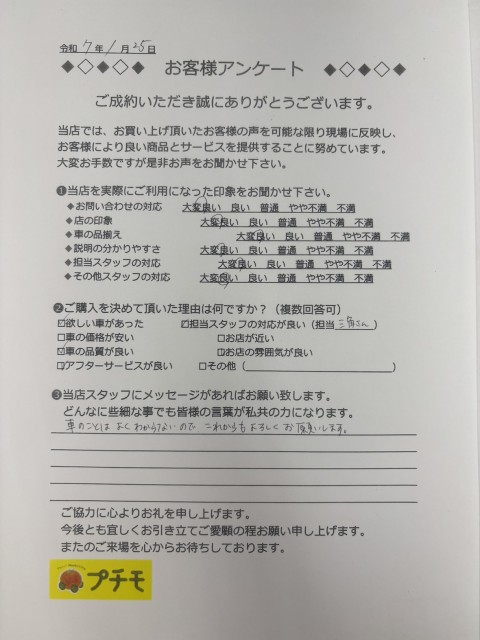 令和 7 年 1 月 25 日
◆◇◆◇◆ お客様アンケート ◆◇◆◇◆
ご成約いただき誠にありがとうございます。
当店では、お買い上げ頂いたお客様の声を可能な限り現場に反映し、
お客様により良い商品とサービスを提供することに努めています。
大変お手数ですが是非お声をお聞かせ下さい。
❶当店を実際にご利用になった印象をお聞かせ下さい。
◆お問い合わせの対応 大変良い 良い 普通 やや不満 不満
◆店の印象 大変良い 良い 普通 やや不満 不満
◆車の品揃え 大変良い 良い 普通 やや不満 不満
◆説明の分かりやすさ 大変良い 良い 普通 やや不満 不満
◆担当スタッフの対応 大変良い 良い 普通 やや不満 不満
◆その他スタッフの対応 大変良い 良い 普通 やや不満 不満
❷ご購入を決めて頂いた理由は何ですか？（複数回答可）
☑欲しい車があった ☑担当スタッフの対応が良い（担当 三角さん）
□車の価格が安い □お店が近い
☑車の品質が良い □お店の雰囲気が良い
☑アフターサービスが良い □その他（ ）
❸当店スタッフにメッセージがあればお願い致します。
どんなに些細な事でも皆様の言葉が私共の力になります。
車のことは よく わからないので これからも よろしく お願いします。
ご協力に心よりお礼を申し上げます。
今後とも宜しくお引き立てご愛顧の程お願い申し上げます。
またのご来場を心からお待ちしております。
プチモ